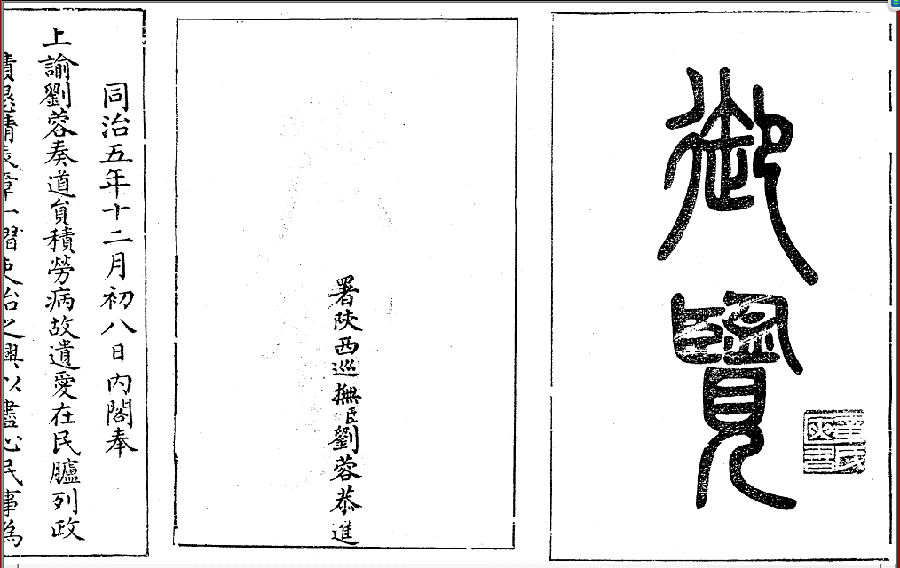 御覽
署陝西巡撫臣劉蓉恭進
同治五年十二月初八日內閣奉
上諭劉蓉奏道員積勞病故遺愛在民臚列政
績懇請表章一摺吏治之興以盡心民事為